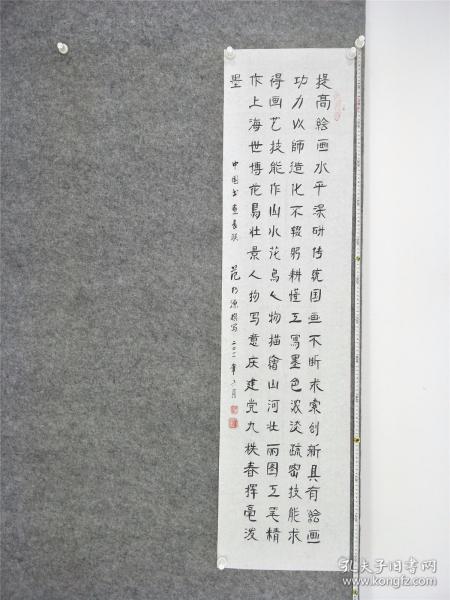 提高绘画水平深研传统国画不断求索创新具有绘画
功力以師造化不辍躬耕懂工写墨色浓淡疏密技能求
得画艺技能作山水花鸟人物描繪山河壮丽图工笔精
作上海世博花鸟壮景人物写意庆建党九秩春挥毫泼
墨
中国书画長联
范乃源撰写二〇二一年六月
孔夫子旧书网
www.kongfz.com